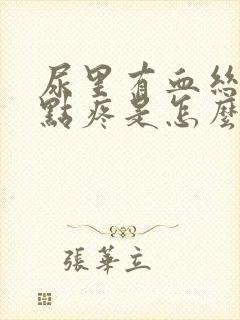 尿里有血絲
點疼是怎麼
張華立